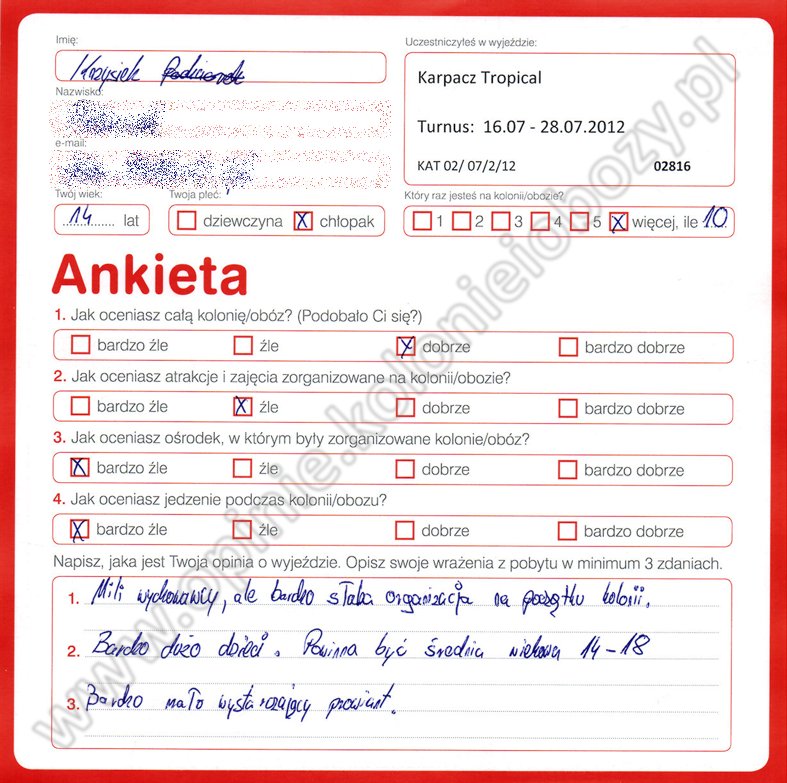 Imię:
Krzysiek
Nazwisko:
e-mail:
Twój wiek:
14 lat
Twoja płeć:
dziewczyna X chłopak
Uczestniczyłeś w wyjeździe:
Karpacz Tropical
Turnus: 16.07 - 28.07.2012
KAT 02/ 07/2/12 02816
Który raz jesteś na kolonii/obozie?
1 2 3 4 5 X więcej, ile 10
Ankieta
1. Jak oceniasz całą kolonię/obóz? (Podobało Ci się?)
bardzo źle źle X dobrze bardzo dobrze
2. Jak oceniasz atrakcje i zajęcia zorganizowane na kolonii/obozie?
bardzo źle X źle dobrze bardzo dobrze
3. Jak oceniasz ośrodek, w którym były zorganizowane kolonie/obóz?
X bardzo źle źle dobrze bardzo dobrze
4. Jak oceniasz jedzenie podczas kolonii/obozu?
X bardzo źle źle dobrze bardzo dobrze
Napisz, jaka jest Twoja opinia o wyjeździe. Opisz swoje wrażenia z pobytu w minimum 3 zdaniach.
1. Mili wychowawcy, ale bardzo słaba organizacja na początku kolonii.
2. Bardzo dużo dzieci. Powinna być średnia wiekowa 14-18
3. Bardzo mało wystarczający prowiant.
www.opinie.kolonieiobozy.pl